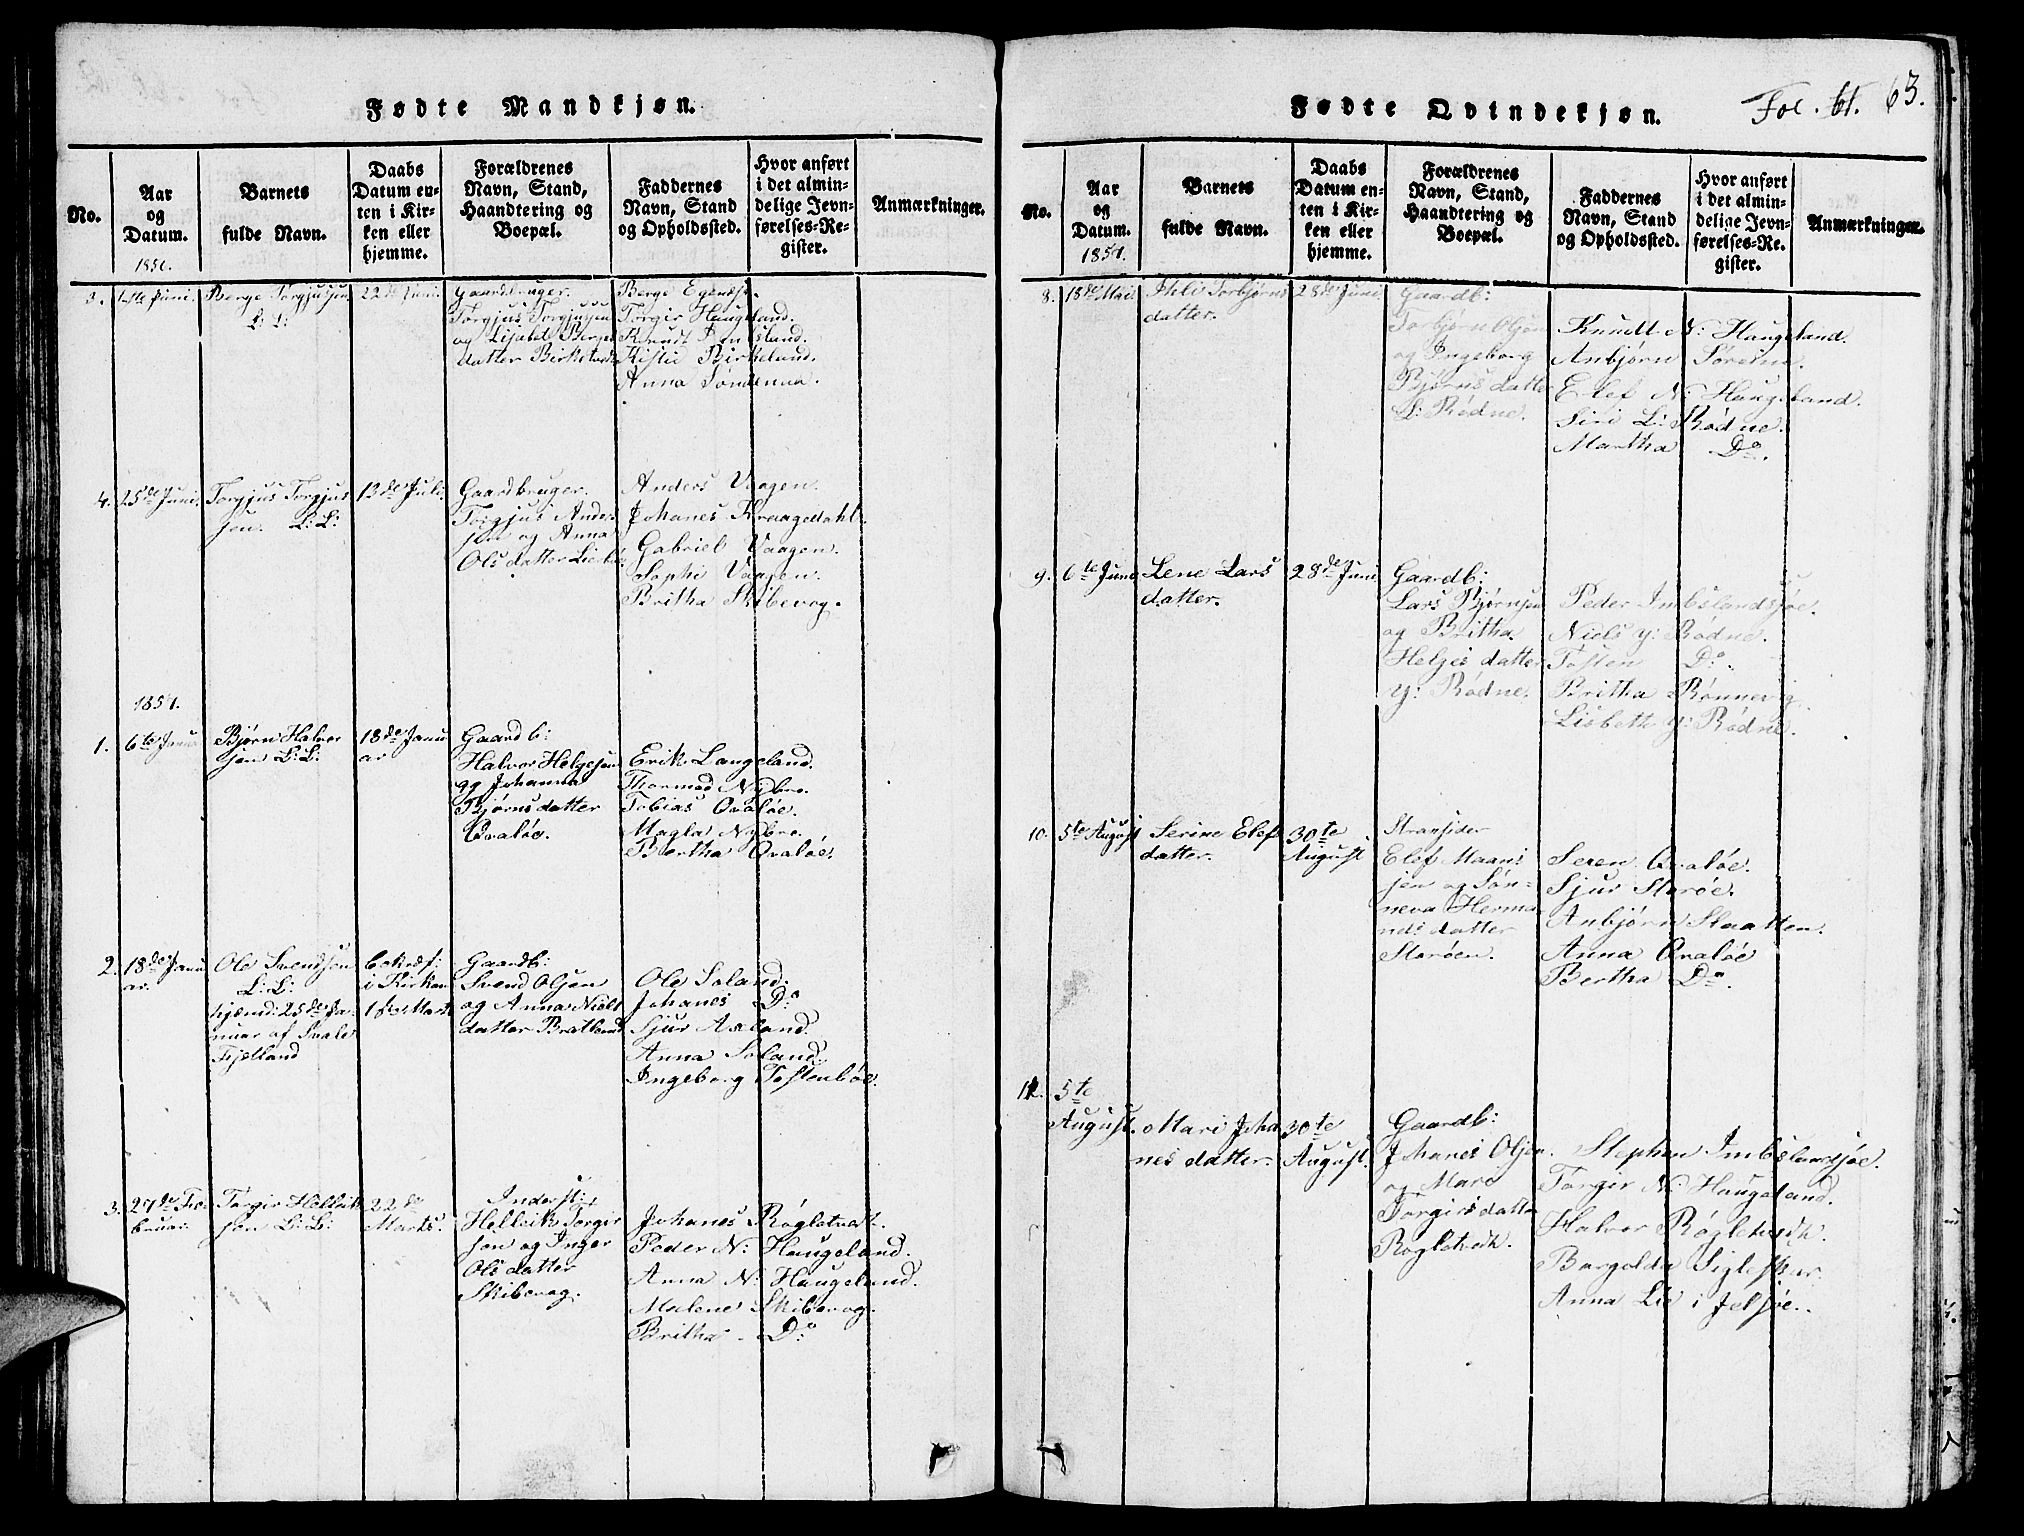 Fødte Mandkjøn.
No.
Aar
og
Datum.
Barnets
fulde Navn.
Daabs
Datum en-
ten i Kir-
ken eller
hjemme.
Forældrenes
Navn, Stand,
Haandtering og
Boepæl.
Faddernes
Navn, Stand
og Opholdssted.
Hvor anført
i det almin-
delige Jevn-
førelses-Re-
gister.
Anmærkninger.
3.
Juni.
Berge Torgjusjen
L: L:
22de Juni.
Gaardbruger.
Torgjus Torgjusjen
og Lisabet Berges
datter
Berge
Torgir Haugeland.
Knudt
Birkeland.
Anna
4.
25de Juni.
Torgjus Torgjus
jen. L: L:
13de Juli.
Gaardbruger.
Torgjus Ander
jen og Anna
Ols datter
Anders Vaagen.
Johanes Kraagedahl.
Gabriel Vaagen.
Sophi Vaagen.
Britha Skibevog.
1.
6te Janu
Bjørn Halvor
jen L: L:
18de Janu
ar
Gaardb:
Halvor Helgesen
og Johanna
Bjørns datter
Qvaløe.
Erik Langeland.
Thormod Nybro.
Tobias Qvaløe.
Magla Nybro.
Bertha Qvaløe.
2.
18de Janu
ar.
Ole Svendsen
L: L:
hjemd: 25de Ja-
nuar af
Fjetland
bekræf:
i Kirken
Marts
Gaardb:
Svend Olsen
og Anna Niels
datter Bratland
Ole Soland.
Johanes Do
Sjur Axland.
Anna Soland.
Ingeborg Tostenbøe.
3.
27de Fe-
bruar.
Torgir Helleik
jen L: L:
22de
Marts.
Inderst:
Helleik Torgir
jøn og Inger
Ols datter
Skibevog.
Johanes
Peder N: Haugeland.
Anna N: Haugeland.
Malene Skibevog.
Britha Do
Fødte Qvindekjøn.
Fol. 61. 63.
No.
Aar
og
Datum.
1851.
Barnets
fulde Navn.
Daabs
Datum en-
ten i Kir-
ken eller
hjemme.
Forældrenes
Navn, Stand,
Haandtering og
Boepæl.
Faddernes
Navn, Stand
og Opholdssted.
Hvor anført
i det almin-
delige Jevn-
førelses-Re-
gister.
Anmærkninger.
8.
18de Mai
Torbjørns
datter.
28de Juni
Gaardb:
Torbjørn Olsen
og Ingeborg
Bjørns datter
L: Rødne.
Knudt N: Haugeland.
Anbjørn
Elef N: Haugeland.
Siri L: Rødne.
Martha Do.
9.
6te Juni
Lene Lars
datter.
28de Juni
Gaardb:
Lars Bjørnsen
og Britha
Helges datter
Y: Rødne.
Peder Imbslandsjøe.
Niels Y: Rødne.
Tosten Do.
Britha Rønnevig
Lisbeth Y: Rødne.
10.
5te August
Serine Elef
datter.
30te
August
Stransider
Elef Maans
jen og Søn-
neva Herma
nds datter
Storøen.
Seren Qvaløe.
Sjur Storøe.
Anbjørn Slaatten.
Anna Qvaløe
Bertha Do.
11.
5te
August.
Mari Joha
nes datter.
30te
August.
Gaardb:
Johanes Olsen
og Mari
Torgirs datter
Stephen Imbslandsjøe.
Torgir N: Haugeland.
Halvor
Anna Lie i Jelsøe.